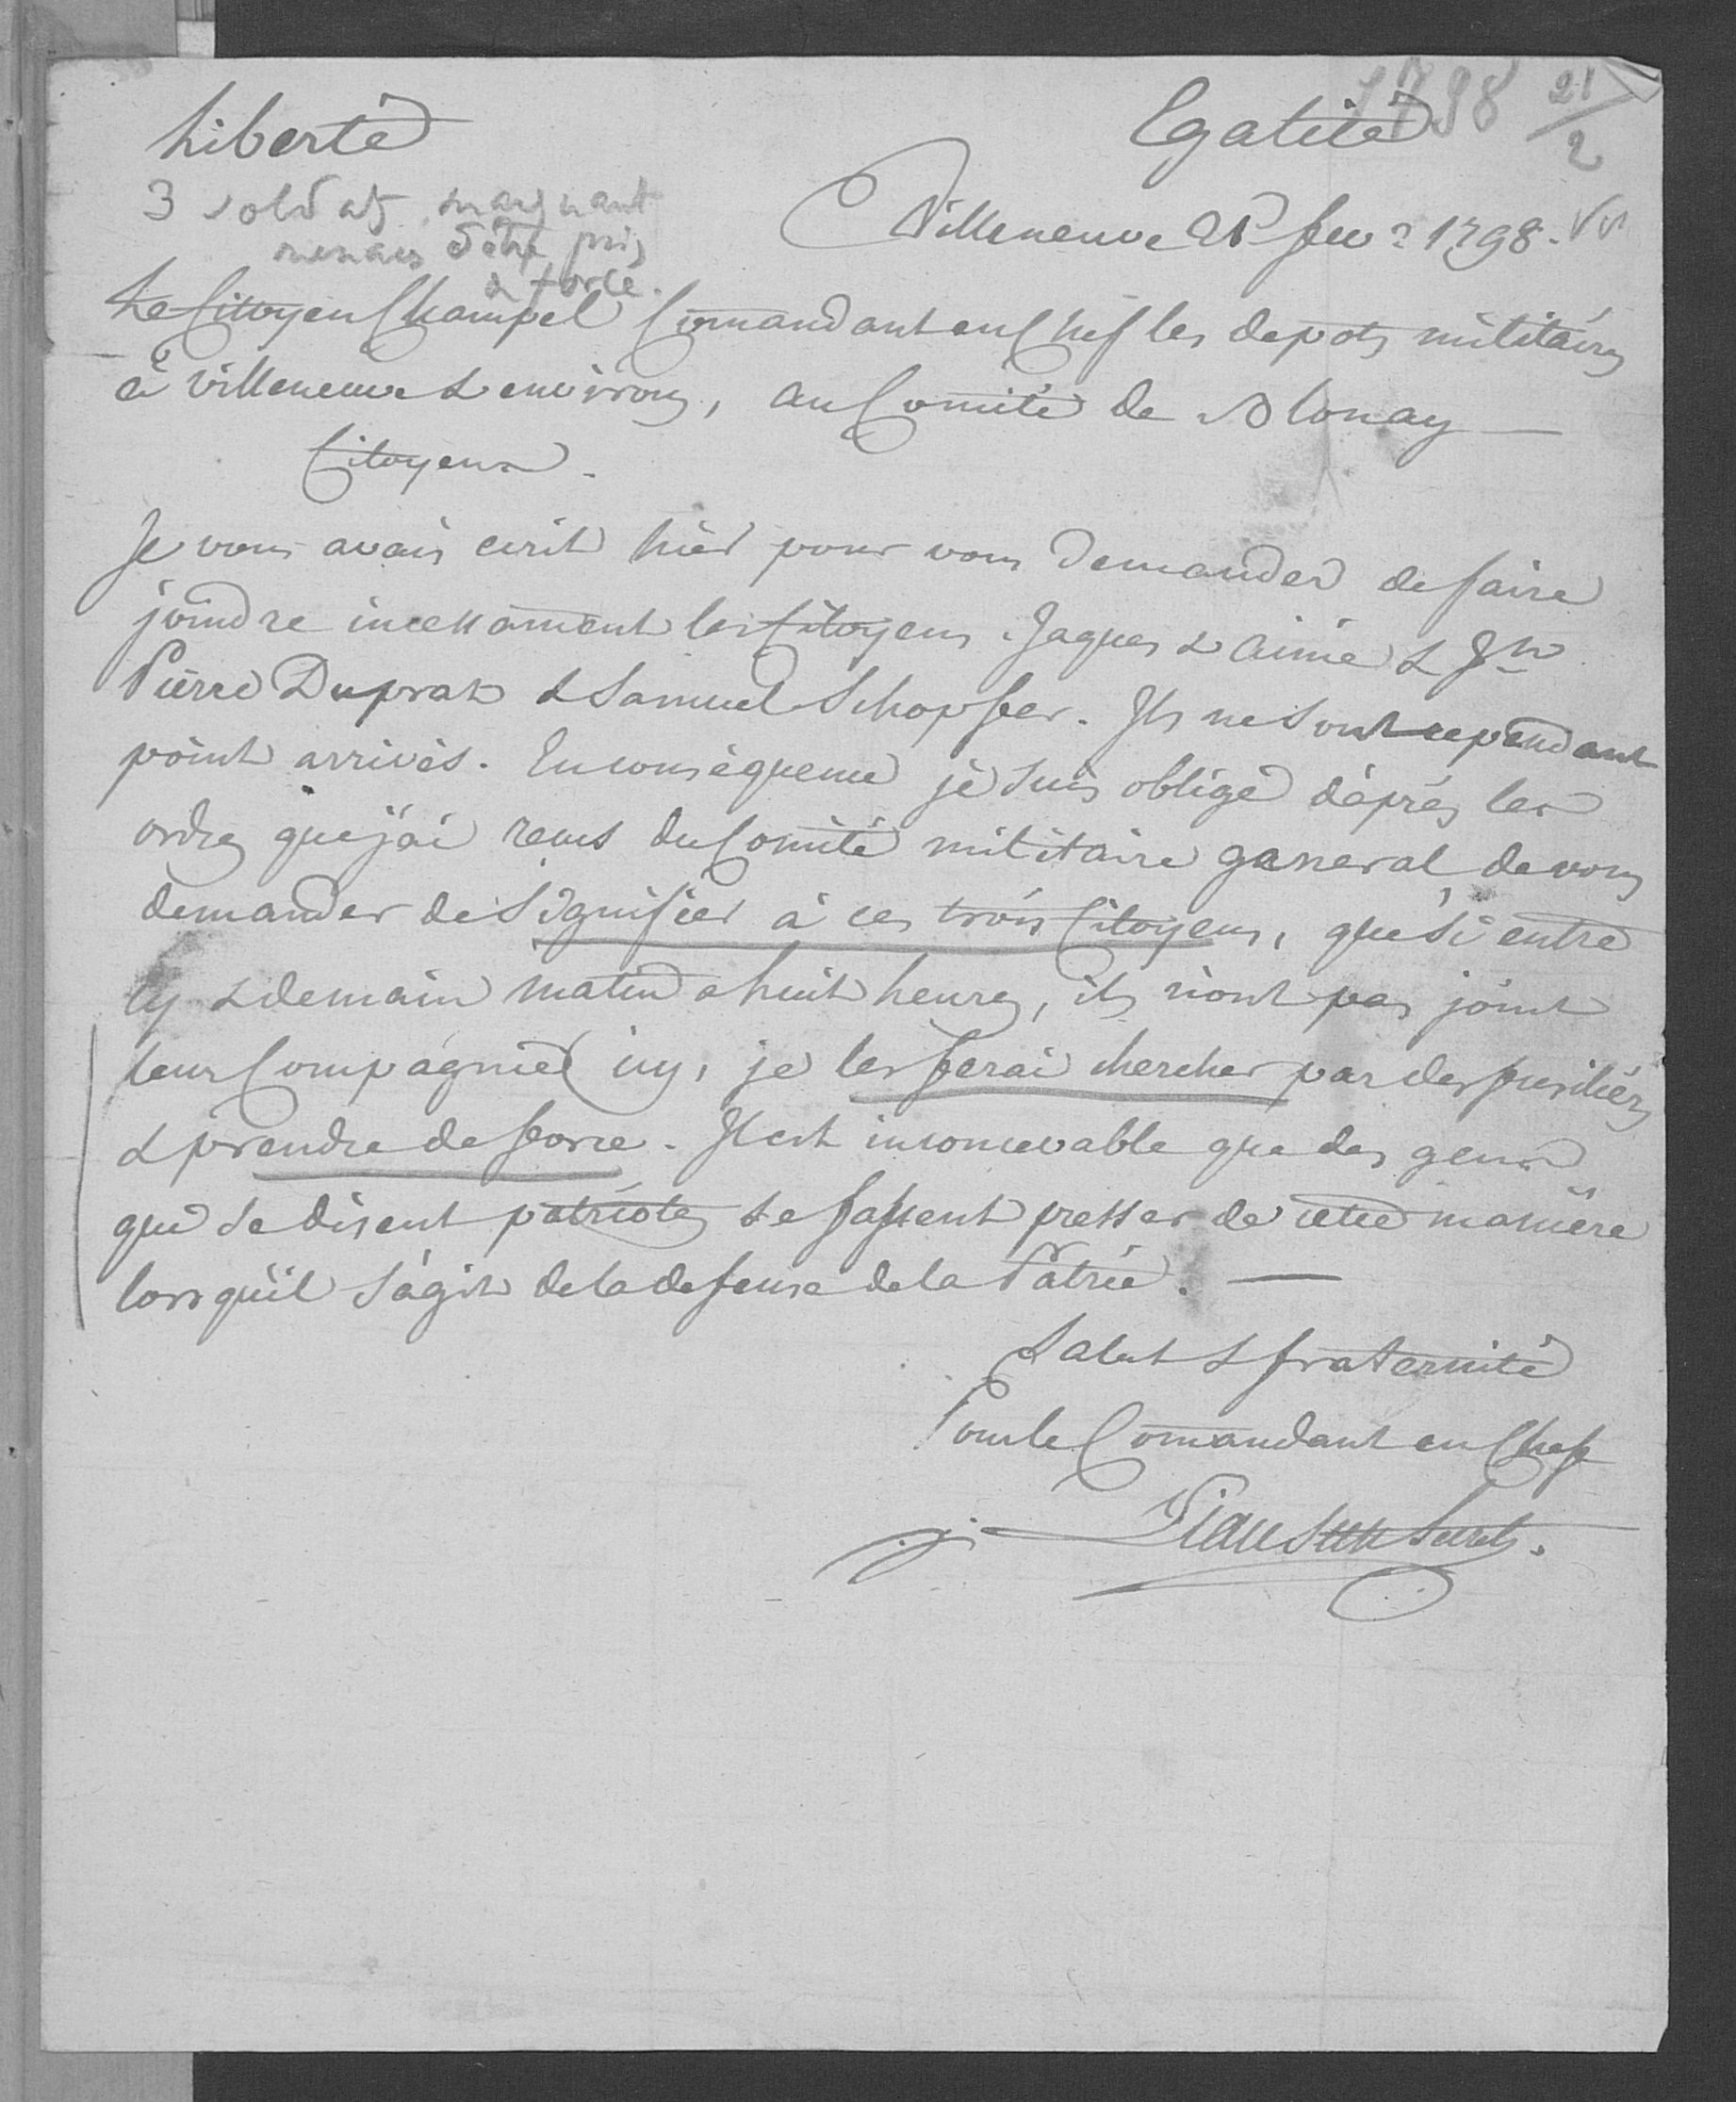 Liberté Egalité
1798 21/2
3 soldats manquant
menacés d'être pris
de force.
Villeneuve 21 fevr 1798.
Le Citoyen Champel Comandant en Chef les depots militaires
à Villeneuve & environs, au Comité de Blonay —
Citoyens
Je vous avais ecrit hier pour vous demander de faire
joindre incessament les Citoyens Jaques & Aimé & Jn
Pierre Duprat & Samuel Schopfer. Ils ne sont cependant
point arrivés. En conséquence je suis obligé d'après les
ordres que j'ai recus du Comité militaire general de vous
demander de signifier à ces trois Citoyens, que si entre
cy & demain matin a huit heures, ils n'ont pas joint
leur Compagnie icy, je les ferai chercher par des fusiliers
& prendre de force. Il est inconcevable que des gens
qui se disent patriotes se fassent presser de cette manière
lorsqu'il s'agit de la defense de la Patrie. —
Salut & fraternité
Pour le Comandant en Chef
Secret.